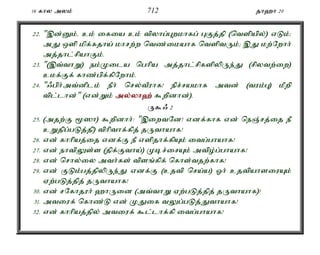 16 கால அலம் 712 தாஹா 20
22. "இன்னும், உம் கையை உம் விலாப்புறமாகப் புகுத்தி (வெளியில்) எடும்;
அது ஒளி மிக்கதாய் மாசற்ற வெண்மையாக வெளிவரும்; இது மற்றோர்
அத்தாட்சியாகும்.
23. "(இவ்வாறு) நம்முடைய பெரிய அத்தாட்சிகளிலிருந்து (சிலவற்றை)
உமக்குக் காண்பிக்கிறோம்.
24. "ஃபிர்அவ்னிடம் நீர் செல்வீராக! நிச்சயமாக அவன் (வரம்பு) மீறி
விட்டான்" (என்றும் அல்லாஹ் கூறினான்).
ருகூஃ 2
25. (அதற்கு மூஸா) கூறினார்: "இறைவனே! எனக்காக என் நெஞ்சத்தை நீ
உறுதிப்படுத்தி) விரிவாக்கித் தருவாயாக!
26. என் காரியத்தை எனக்கு நீ எளிதாக்கியும் வைப்பாயாக!
27. என் நாவிலுள்ள (திக்குவாய்) முடிச்சையும் அவிழ்ப்பாயாக!
28. என் சொல்லை அவர்கள் விளங்கிக் கொள்வதற்காக!
29. என் குடும்பத்திலிருந்து எனக்கு (உதவி செய்ய) ஓர் உதவியாளரையும்
ஏற்படுத்தித் தருவாயாக!
30. என் சகோதரர் ஹாரூனை (அவ்வாறு ஏற்படுத்தித் தருவாயாக)!
31. அவரைக் கொண்டு என் முதுகை வலுப்படுத்துவாயாக!
32. என் காரியத்தில் அவரைக் கூட்டாக்கி வைப்பாயாக!